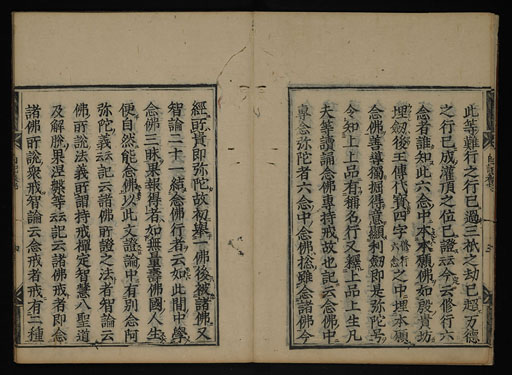 此等難行之行已過三祇之劫已超万德
之行已成灌頂之位已證云云今云修行六
念者誰知此六念中本本願佛如殷貴坊
埋劔後王傳代寳四字修行六念之中埋本願
念佛善導獨掘得意顯利劔即是弥陀号
令知上上品有稱名行又輕上品上生凡
夫華讀誦念佛專持戒故也記云念佛中
專念弥陀者六念中念佛㧾雖念諸佛今
經所貴即弥陀故初舉一佛後被諸佛又
智論二十一結念佛行者云如此間中學
念佛三昧果報得者如無量壽佛國人生
便自然能念佛以此文證論中有別念阿
弥陀義云云記云諸佛所證之法者智論云
佛所說法所謂持戒禪定智慧八聖道
及解脫果涅槃等云云記云諸佛戒者即念
諸佛所說衆戒智論云念戒者戒有二種